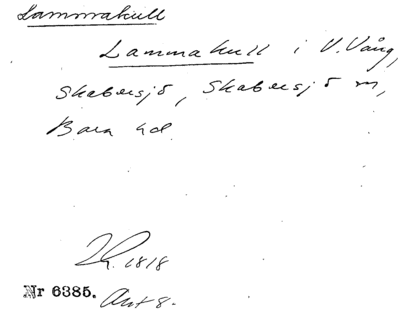 Lammakull
Lammakull i V. Vång,
Skabersjö, Skabersjö sn,
Bara hd.
1818
Nr 6385. Ant 8.